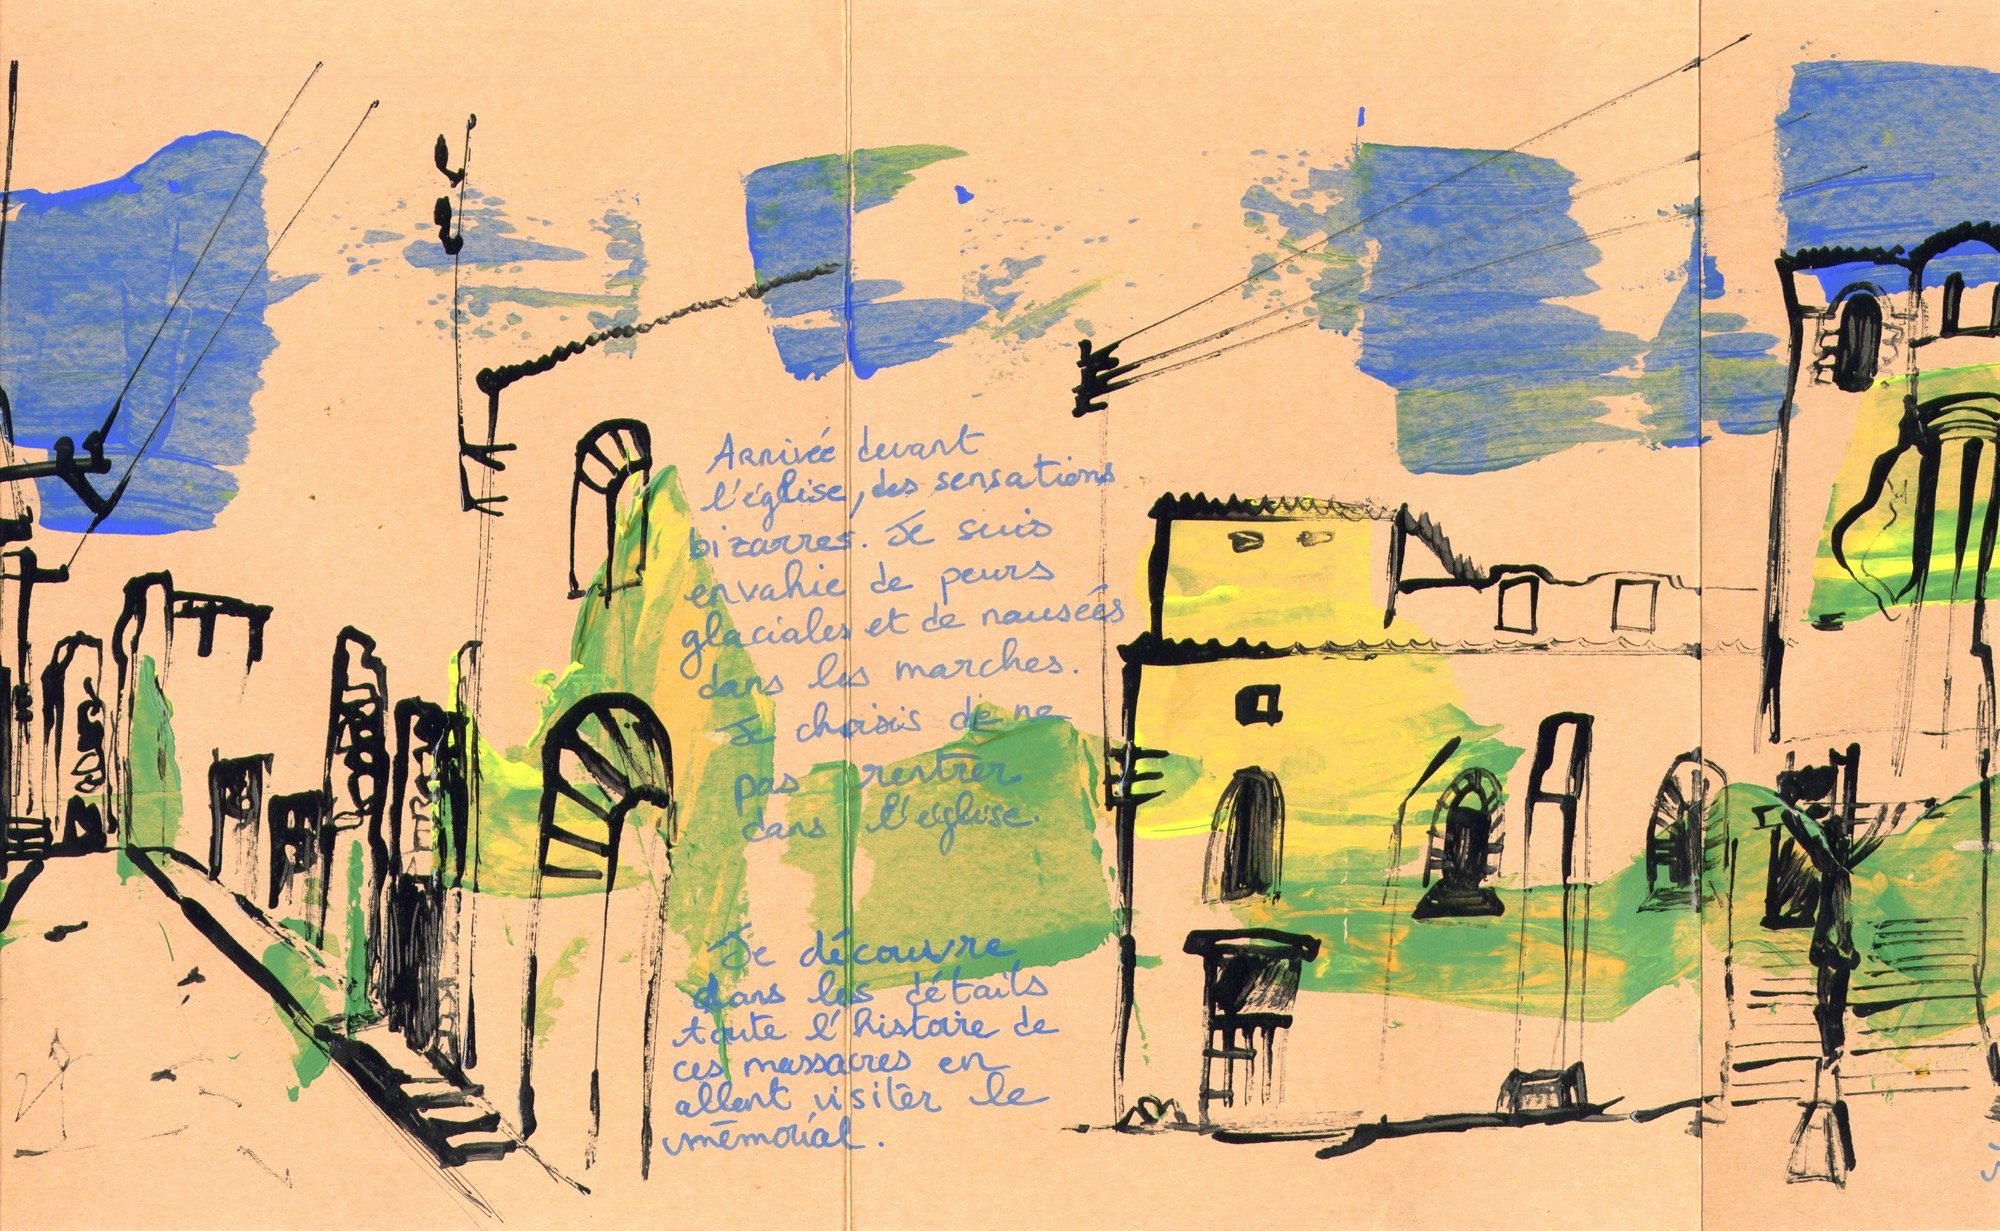 Arrivée devant
l'église, des sensations
bizarres. Je suis
envahie de peurs
glaciales et de nauseés
dans les marches.
Je choisis de ne
pas rentrer
dans l'église.
Je découvre
dans les détails
toute l'histoire de
ces massacres en
allent visiter le
mémorial.